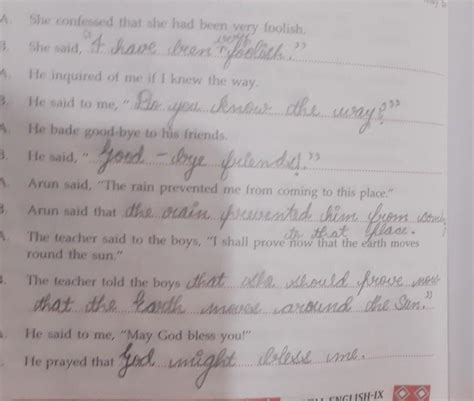 A. She confessed that she had been very foolish.
B. She said, "I have been very foolish."
A. He inquired of me if I knew the way.
B. He said to me, "Do you know the way?"
A. He bade good-bye to his friends.
B. He said, "Good-bye friends!"
A. Arun said, "The rain prevented me from coming to this place."
B. Arun said that the rain prevented him from coming
to that place.
A. The teacher said to the boys, "I shall prove now that the earth moves
round the sun."
The teacher told the boys that she should prove now
that the Earth moves around the Sun."
He said to me, "May God bless you!"
He prayed that God might bless me.
ENGLISH-IX